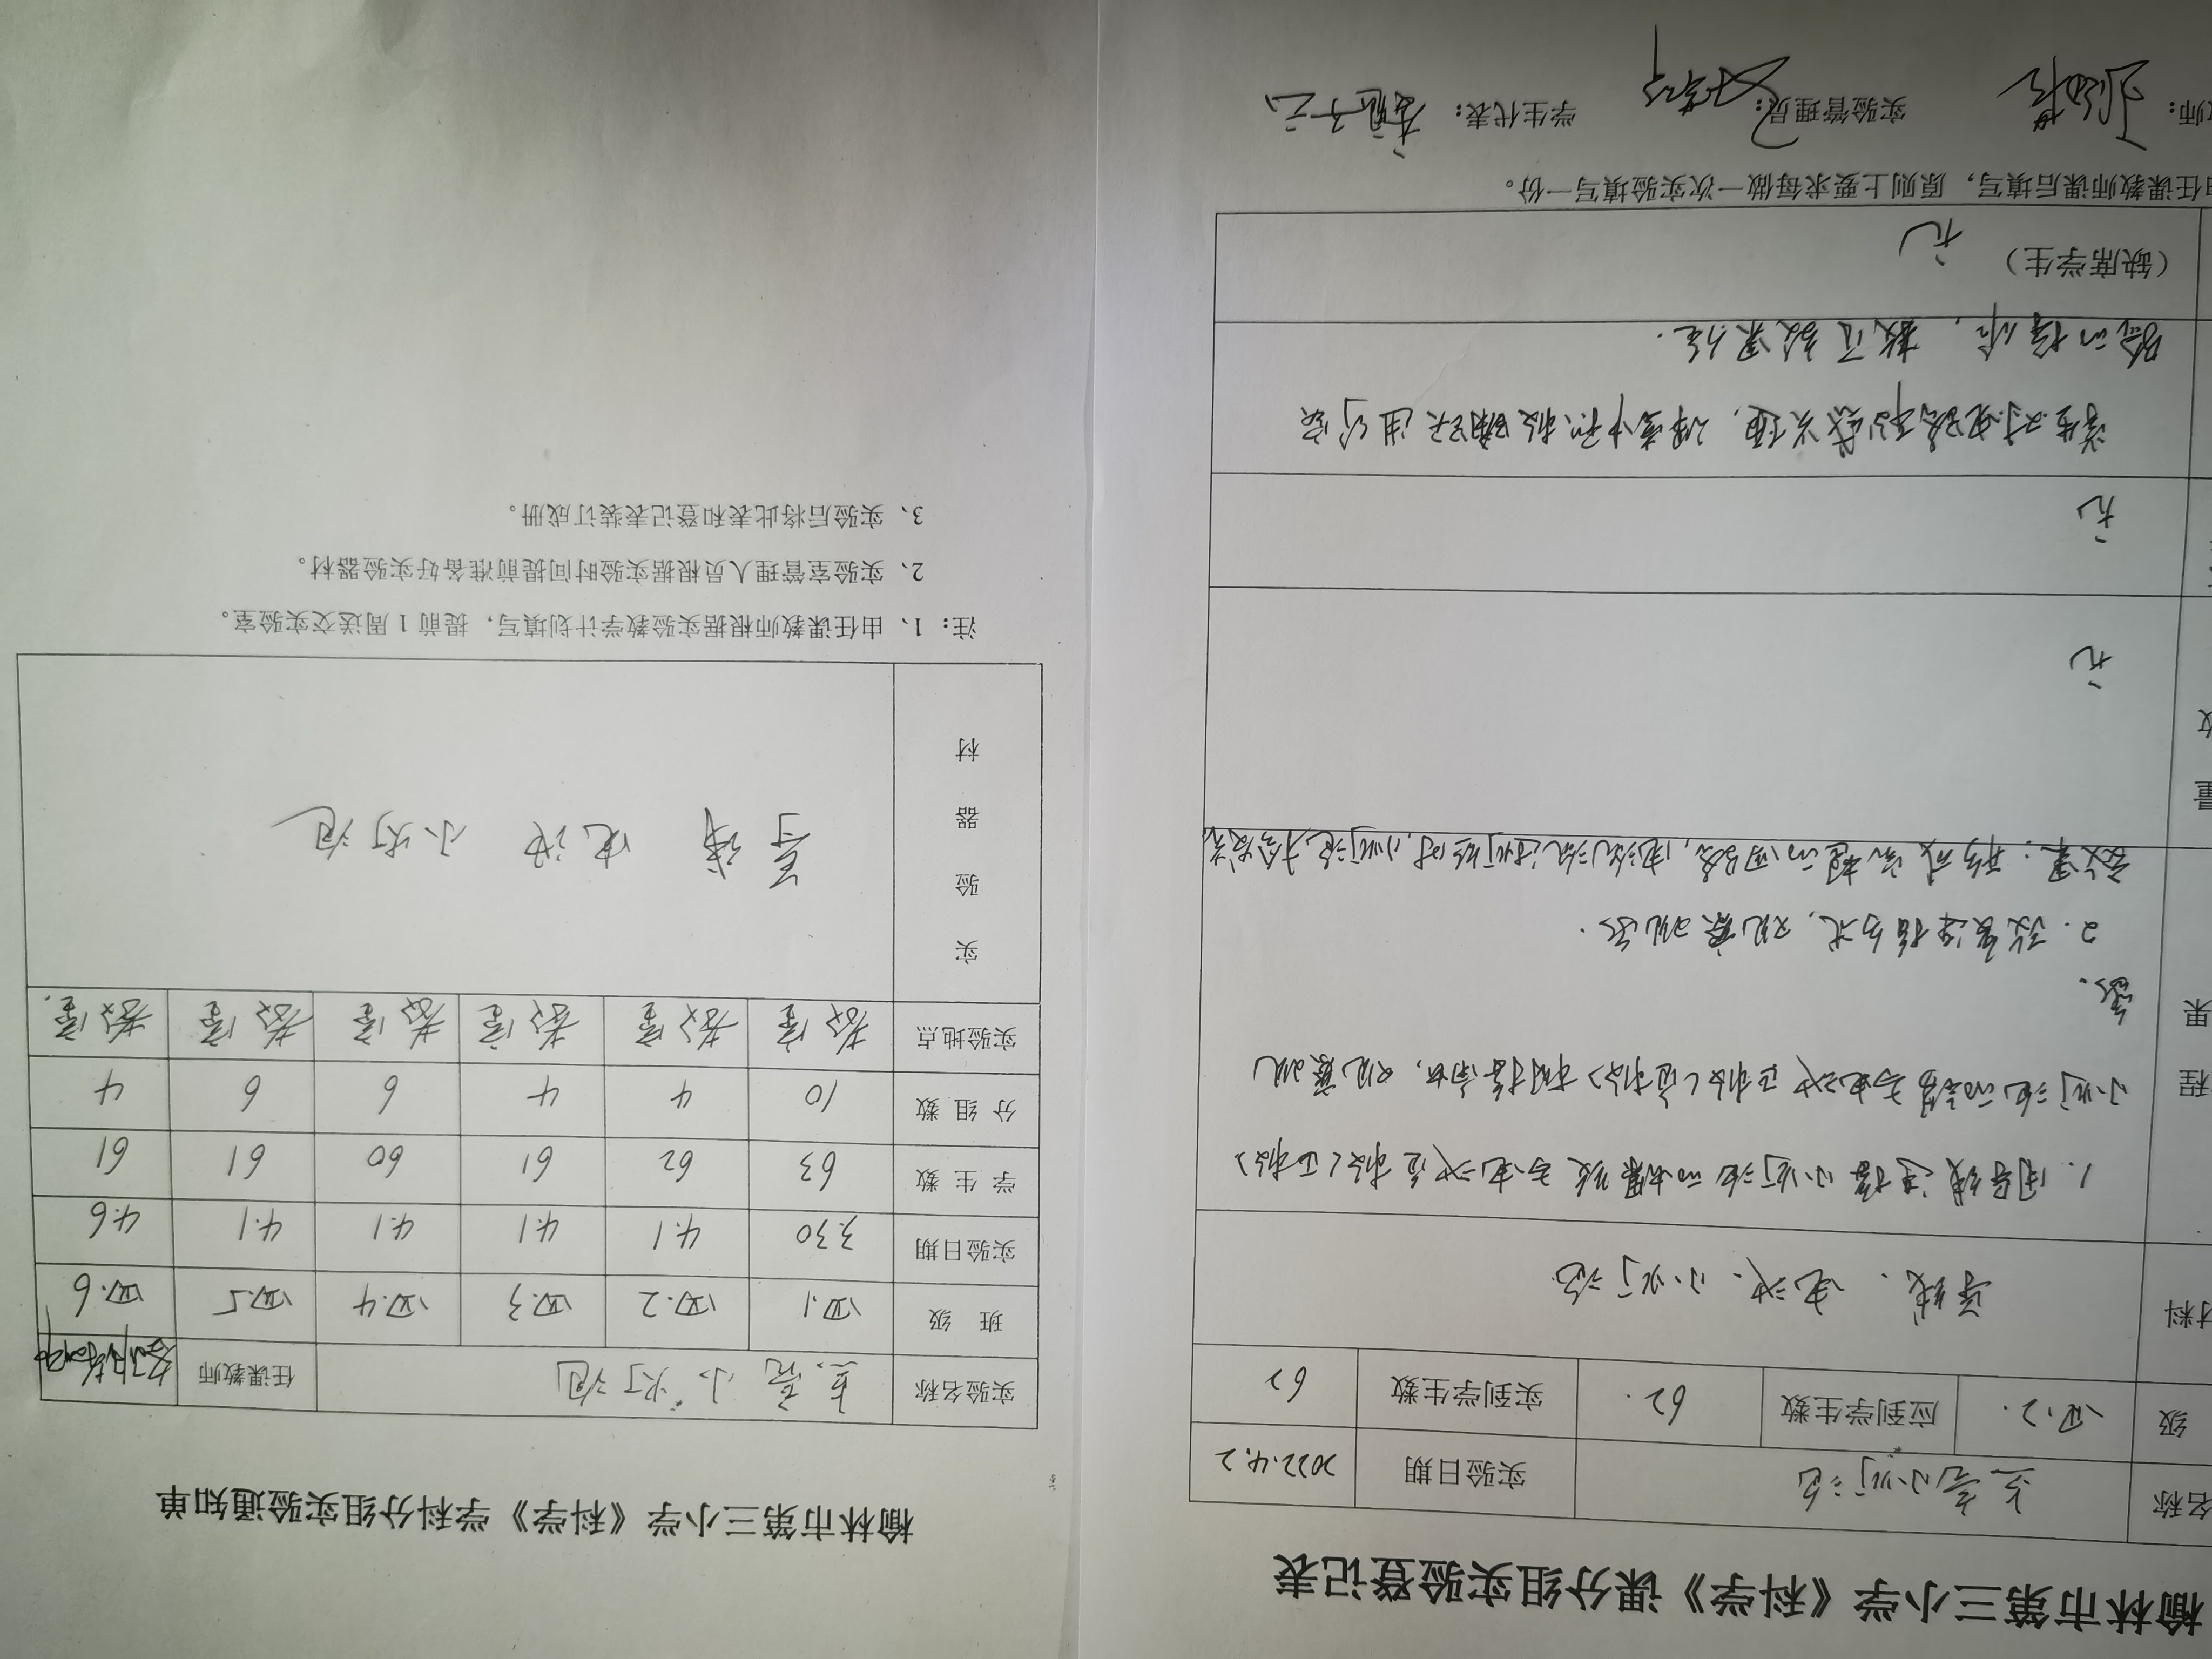 榆林市第三小学《科学》课分组实验登记表
名称 点亮小灯泡 实验日期 2022.4.2
级 四.2. 应到学生数 62. 实到学生数 62
材料 导线、电池、小灯泡
程
果
1. 用导线连接小灯泡的螺纹与电池负极(正极)
小灯泡的锡与电池正极(负极)相接而成,观察现
象.
2. 改变连接方式,观察现象.
效果:形成流程的回路,电流流过灯丝时,小灯泡才会发亮
量 无
无
学生对电路感兴趣,课堂中积极踊跃进行实
验的操作,教百效果佳.
(缺席学生) 无
任课教师课后填写,原则上要求每做一次实验填写一份。
师: 实验管理员: 学生代表:
榆林市第三小学《科学》学科分组实验通知单
实验名称 点亮小灯泡 任课教师
班 级 四.1 四.2 四.3 四.4 四.5 四.6
实验日期 3.30 4.1 4.1 4.1 4.1 4.6
学 生 数 63 62 61 60 61 61
分 组 数 10 4 4 6 6 4
实验地点 教室 教室 教室 教室 教室 教室.
实验器材 导线 电池 小灯泡
注: 1、由任课教师根据实验教学计划填写,提前 1 周送交实验室。
2、实验室管理人员根据实验时间提前准备好实验器材。
3、实验后将此表和登记表装订成册。